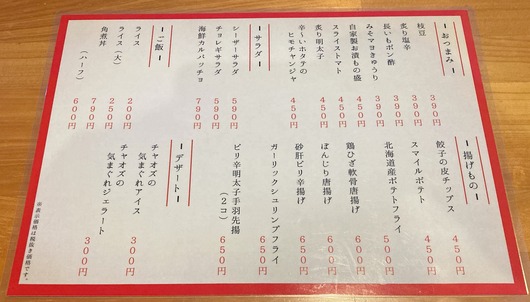 おつまみ
枝豆 390円
炙り塩辛 390円
長いもポン酢 390円
みそマヨきゅうり 390円
自家製お漬もの盛 450円
スライストマト 450円
炙り明太子 450円
辛〜いホタテの
ヒモチャンジャ 450円
サラダ
シーザーサラダ 590円
チョレギサラダ 590円
海鮮カルパッチョ 790円
ご飯
ライス 200円
ライス（大） 250円
角煮丼 790円
（ハーフ） 600円
揚げもの
餃子の皮チップス 450円
スマイルポテト 450円
北海道産ポテトフライ 500円
鶏ひざ軟骨唐揚げ 600円
ぼんじり唐揚げ 600円
砂肝ピリ辛揚げ 650円
ガーリックシュリンプフライ 650円
ピリ辛明太子手羽先揚
（2コ） 650円
デザート
チャオズの
気まぐれアイス 300円
チャオズの
気まぐれジェラート 300円
※表示価格は税抜き価格です。